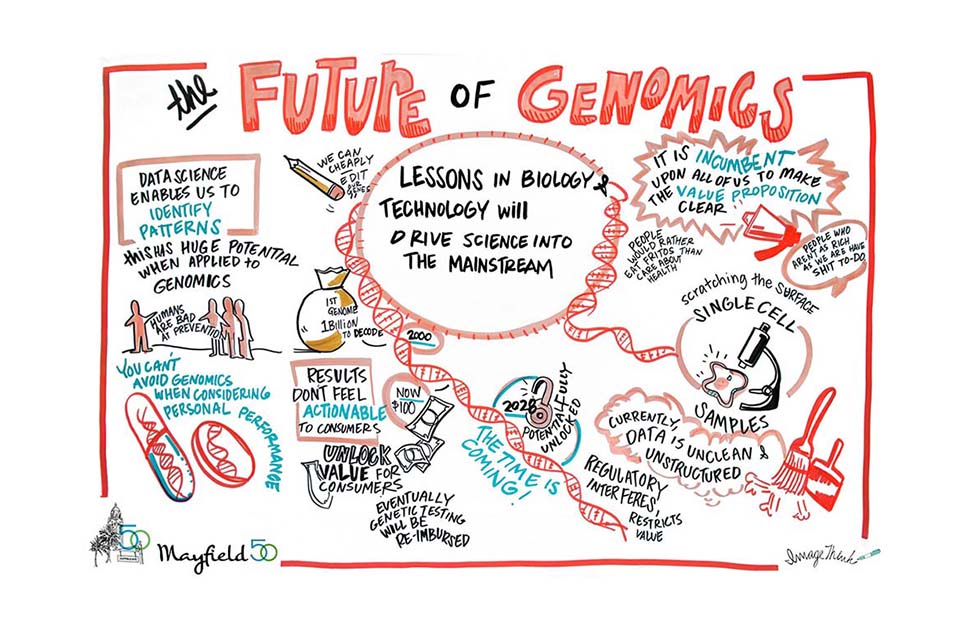 the FUTURE OF GENOMICS
DATA SCIENCE
ENABLES US TO
IDENTIFY
PATTERNS
this HAS HUGE POTENTIAL
WHEN APPLIED TO
GENOMICS
WE CAN
CHEAPLY
EDIT
OUR
GENES
LESSONS IN BIOLOGY &
TECHNOLOGY will
DRIVE SCIENCE INTO
THE MAINSTREAM
IT IS INCUMBENT
UPON ALL OF US TO MAKE
THE VALUE PROPOSITION
CLEAR
PEOPLE
WOULD RATHER
EAT FRITOS THAN
CARE ABOUT
HEALTH
PEOPLE WHO
AREN'T AS RICH
AS WE ARE HAVE
SHIT TO-DO.
HUMANS
ARE BAD
AT PREVENTION
1ST
GENOME
1 Billion
TO DECODE
2000
scratching the SURFACE
SINGLE CELL
SAMPLES
YOU CAN'T
AVOID GENOMICS
WHEN CONSIDERING
PERSONAL PERFORMANCE
RESULTS
DON'T FEEL
ACTIONABLE
TO CONSUMERS
NOW
$100
UNLOCK
VALUE FOR
CONSUMERS
EVENTUALLY
GENETIC TESTING
WILL BE
RE-IMBURSED
2028
POTENTIAL FULLY
UNLOCKED
THE TIME IS
COMING!
CURRENTLY,
DATA IS UNCLEAN &
UNSTRUCTURED
REGULATORY
INTERFERES,
RESTRICTS
VALUE
50
Mayfield 50
ImageThink